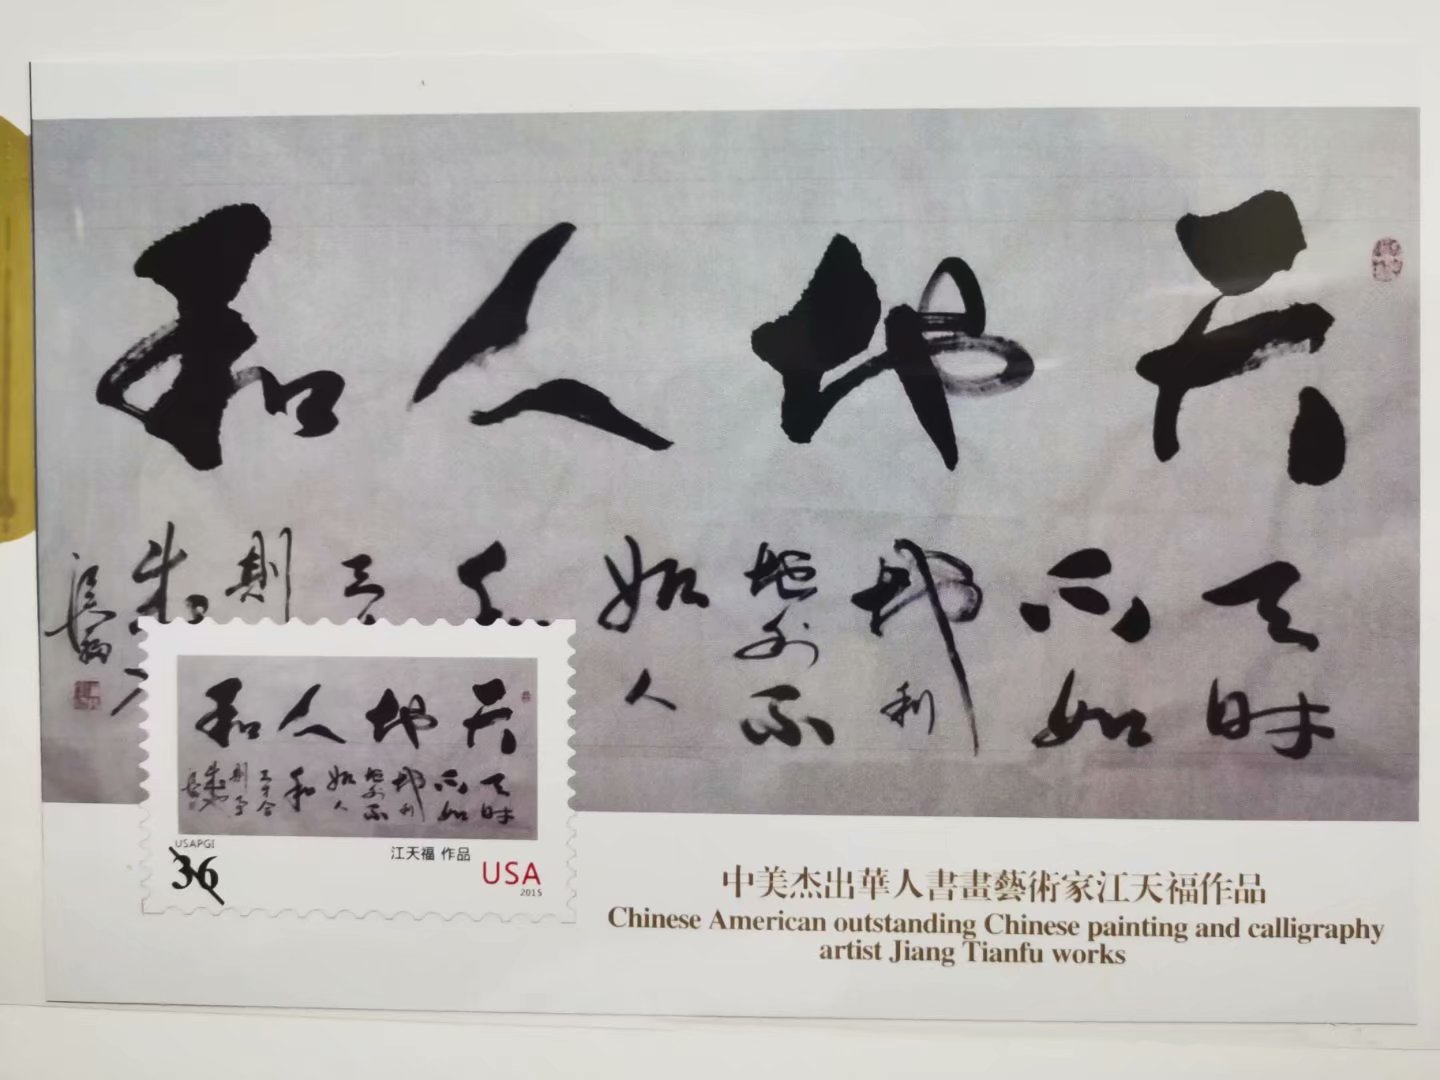 天地人和
天时
不如
地利
地利不
如人
和
三
則
天地人和
天时
不如
地利
地利不
如人
和
USAPGI
36
江天福 作品
USA
2015
中美杰出華人書畫藝術家江天福作品
Chinese American outstanding Chinese painting and calligraphy
artist Jiang Tianfu works